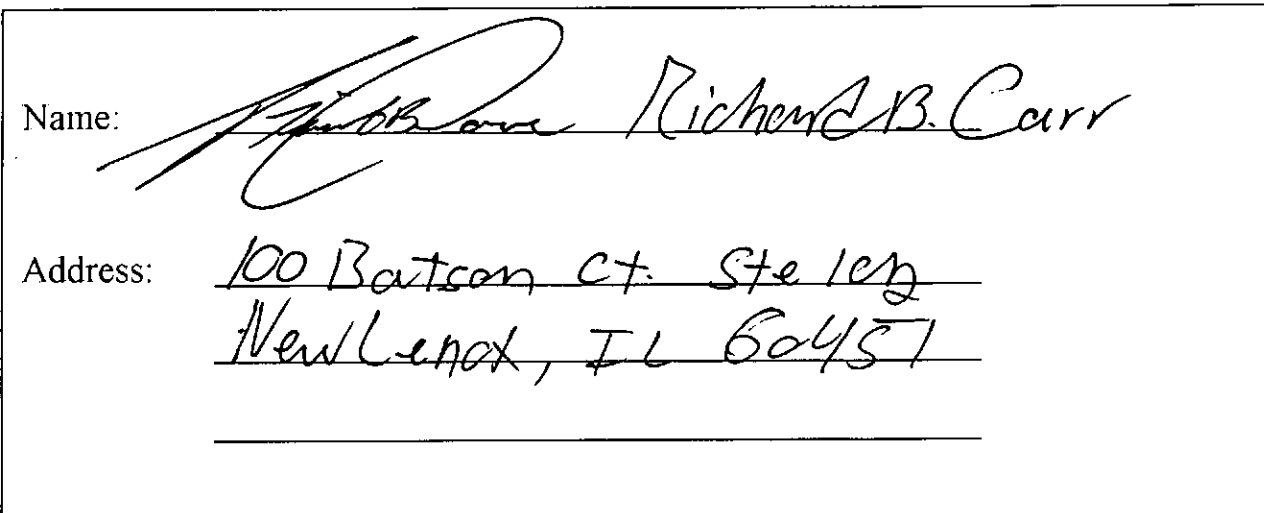 Name: Richard B. Carr
Address: 100 Batson Ct. Ste
New Lenox, IL 60451